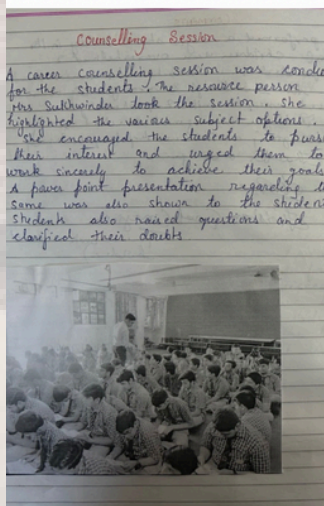 Counselling Session
A career counselling session was condu
for the students. The resource person
Mrs Sukhwinder took the session. She
highlighted the various subject options.
She encouraged the students to purs
their interest and urged them to
work sincerely to achieve their goals
A power point presentation regarding t
same was also shown to the studen
students also raised questions and
clarified their doubts